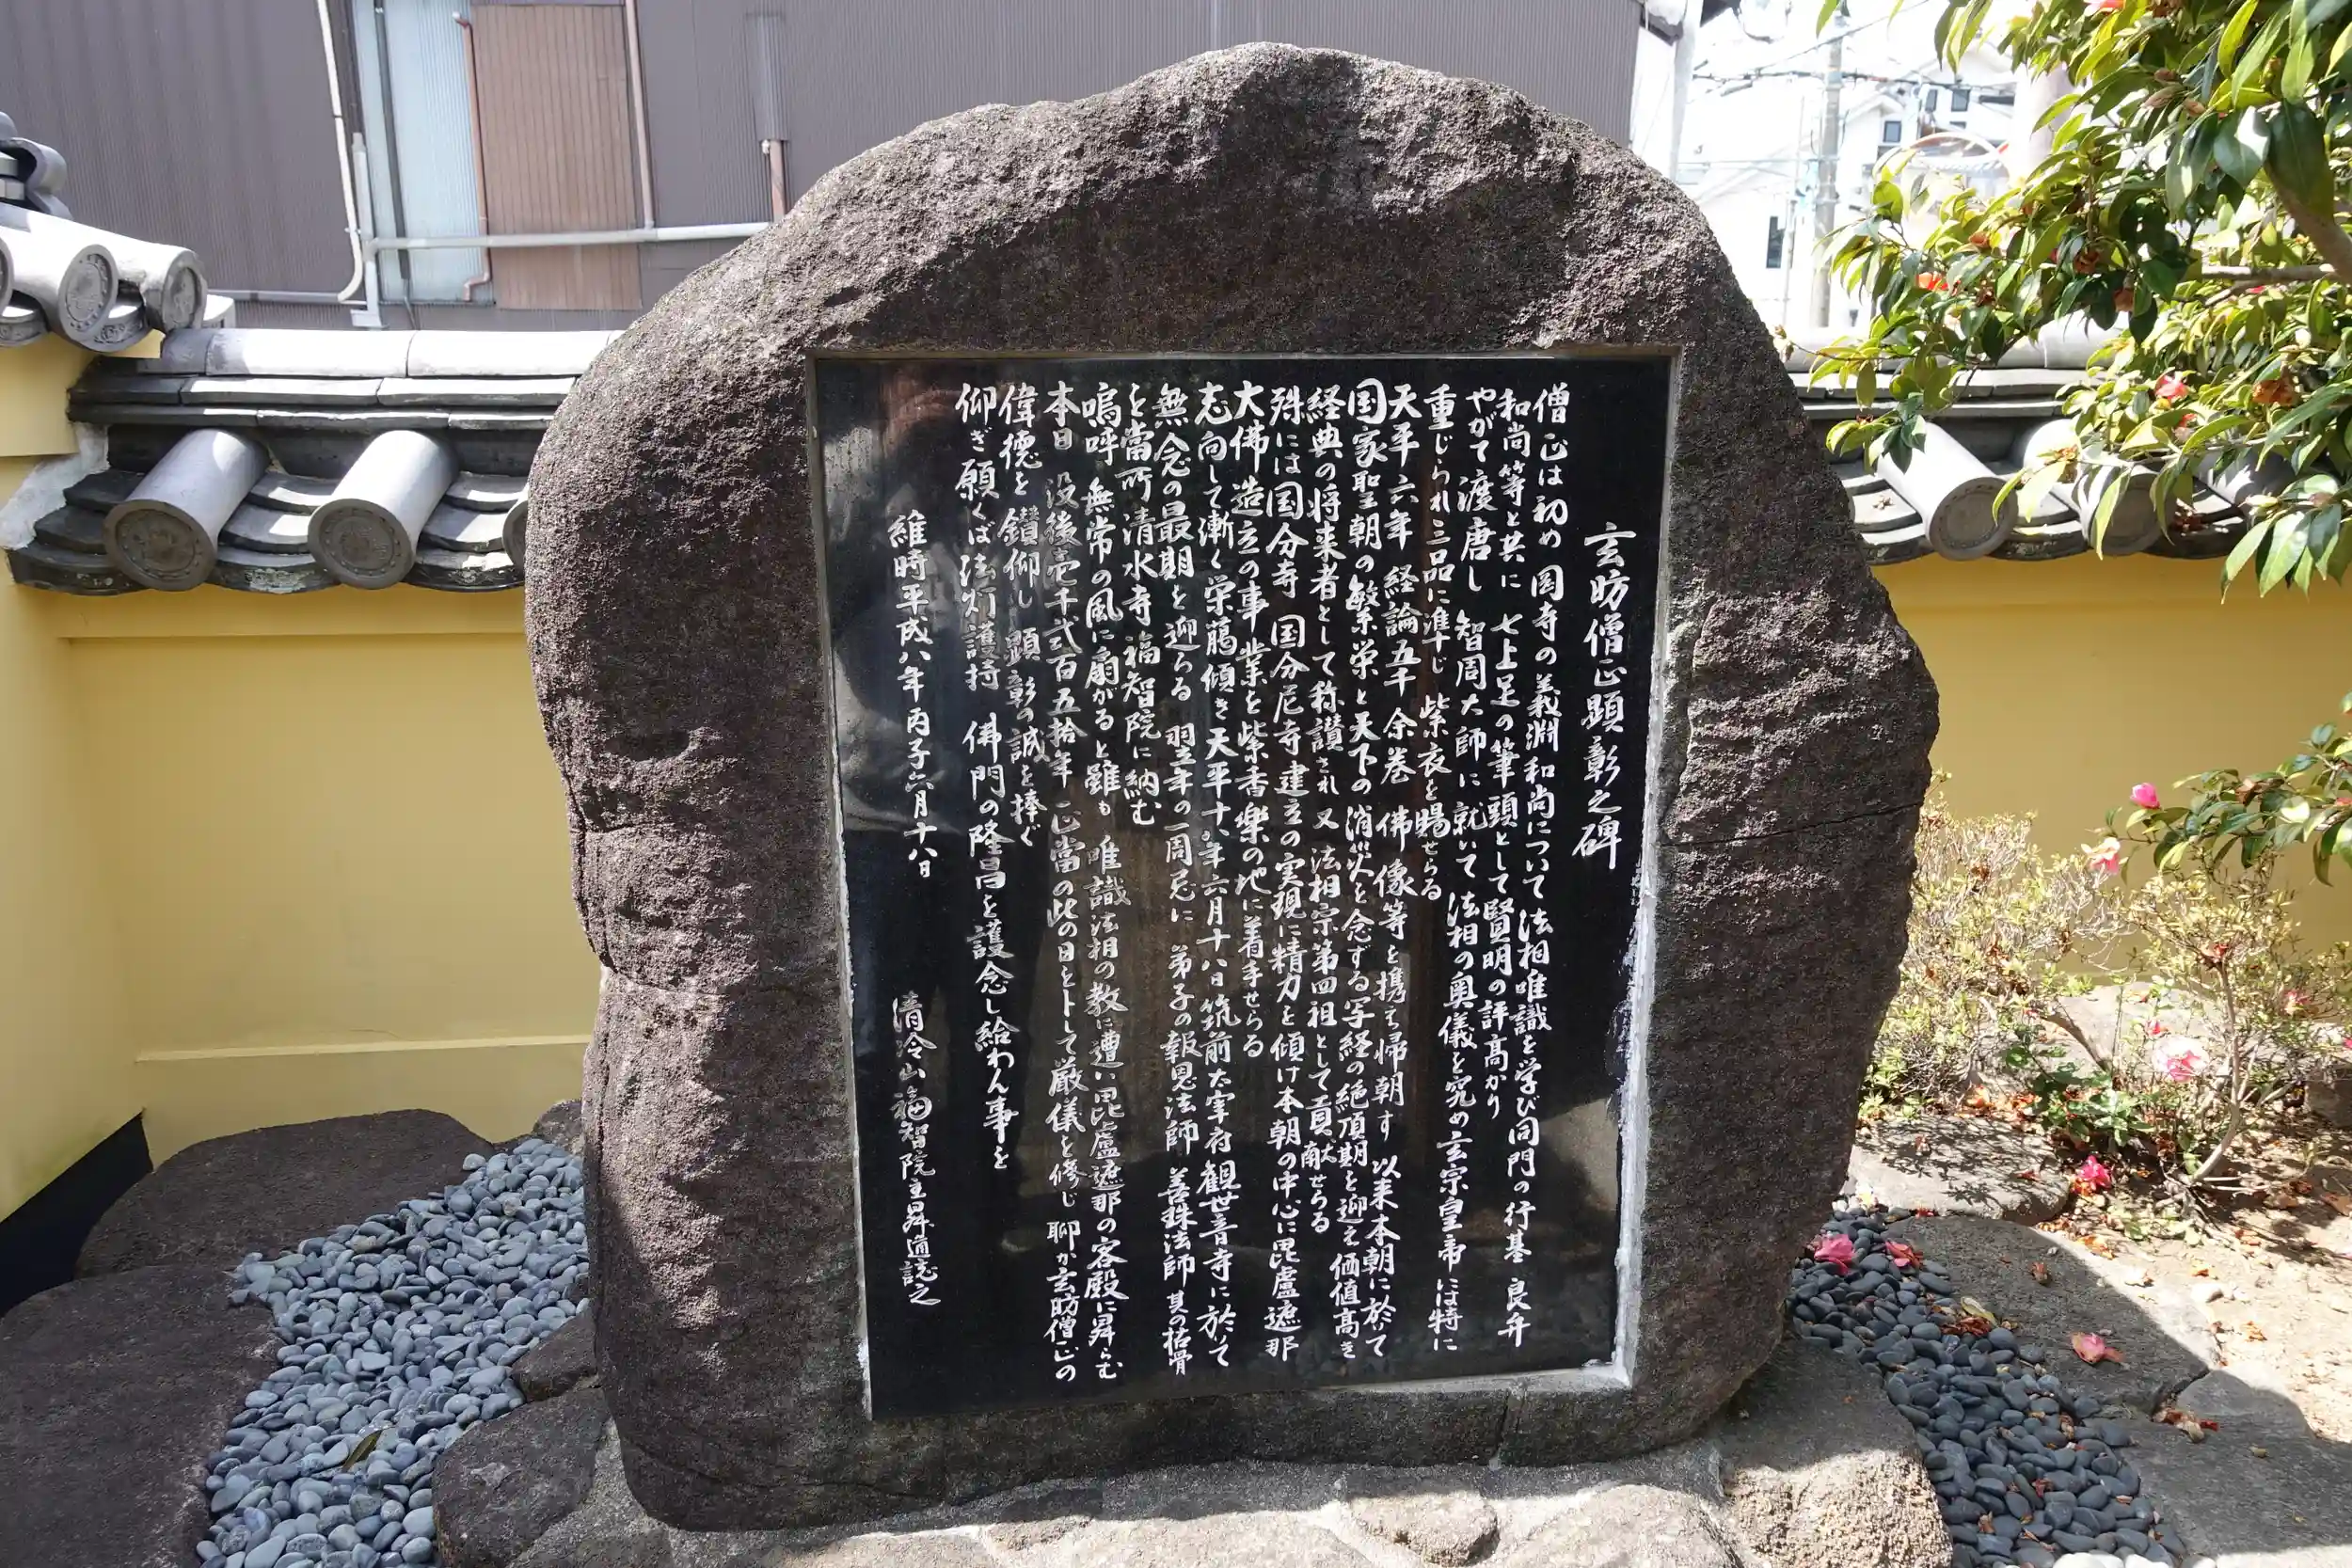 玄昉僧正顕彰之碑
僧正は初め 岡寺の義淵和尚について法相唯識を学び同門の行基 良弁
和尚等と共に 七上足の筆頭として賢明の評高かり
やがて渡唐し 智周大師に就いて 法相の奥儀を究め玄宗皇帝には特に
重じられ三品に準じ 紫衣を賜せらる
天平六年 経論五千余巻 佛像等を携えて帰朝す 以来本朝に於て
国家聖朝の繁栄と天下の消災を念ずる写経の絶頂期を迎え価値高き
経典の将来者として称讃され 又 法相宗第四祖として貢献せらる
殊には国分寺 国分尼寺建立の実現に精力を傾け本朝の中心に毘盧遮那
大佛造立の事業を紫香楽の地に着手せらる
志向して漸く栄﨟傾き天平十八年六月十八日筑前太宰府観世音寺に於いて
無念の最期を迎らる 翌年の一周忌に 弟子の報恩法師 善珠法師 其の枯骨
を當所清水寺福智院に納む
嗚呼 無常の風に扇がると雖も 唯識法相の教に遭い毘盧遮那の客殿に昇らむ
本日 没後壱千弐百五拾年 正當の此の日を卜して厳儀を修し 聊か玄昉僧正の
偉徳を鑚仰し 顕彰の誠を捧ぐ
仰ぎ願くば法灯護持 佛門の隆昌を護念し給わん事を
維時平成八年丙子六月十八日 清令山福智院主昇道誌之